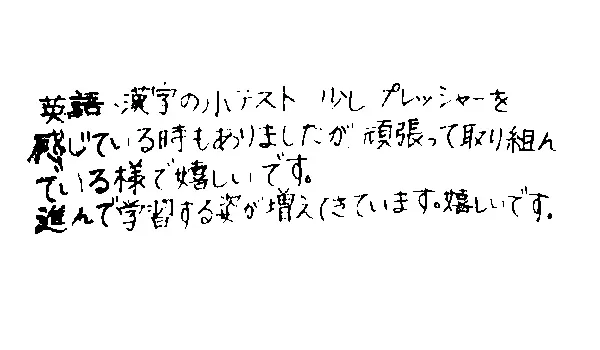 英語、漢字の小テスト 少し プレッシャーを
感じている時もありましたが 頑張って取り組ん
でいる様で嬉しいです。
進んで学習する姿が増えてきています。嬉しいです。